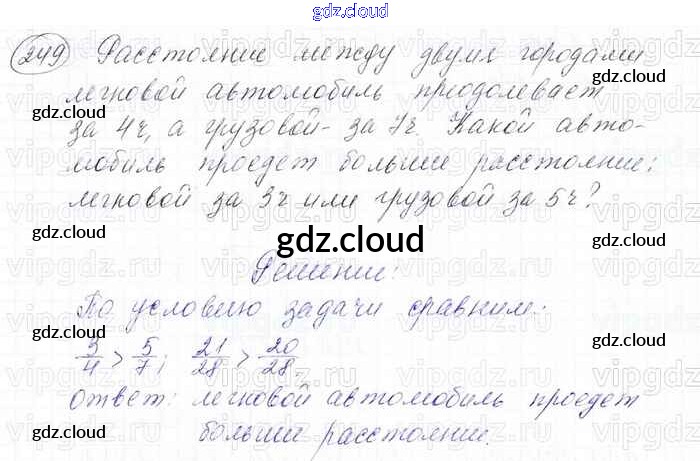 gdz.cloud
249 Расстояние между двумя городами
легковой автомобиль преодолевает
за 4ч, а грузовой - за 7ч. Какой авто-
мобиль проедет больше расстояние:
легковой за 3ч или грузовой за 5ч?
gdz.cloud
Решение:
По условию задачи сравним:
3/4 > 5/7; 21/28 > 20/28.
Ответ: легковой автомобиль проедет
больше расстояние.